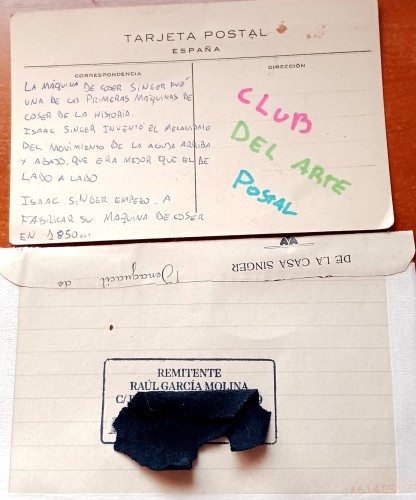 TARJETA POSTAL
ESPAÑA
CORRESPONDENCIA
DIRECCIÓN
LA MÁQUINA DE COSER SINGER FUÉ
UNA DE LAS PRIMERAS MÁQUINAS DE
COSER DE LA HISTORIA.
ISAAC SINGER INVENTÓ EL MECANISMO
DEL MOVIMIENTO DE LA AGUJA ARRIBA
Y ABAJO, QUE ERA MEJOR QUE EL DE
LADO A LADO
ISAAC SINGER EMPEZO A
FABILICAR SU MAQUINA DE COSER
EN 1850
CLUB
DEL ARTE
POSTAL
DE LA CASA SINGER
Benaguacil de
REMITENTE
RAÚL GARCÍA MOLINA
C/